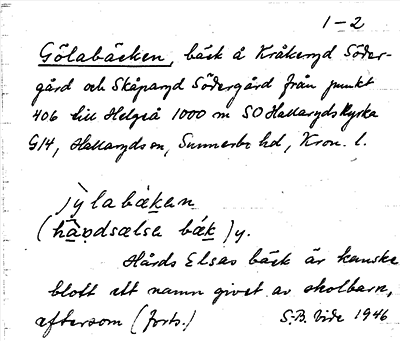 1-2
Gölabäcken, bäck å Kråkeryd Söder-
gård och Skåparyd Södergård från punkt
406 till Helgeå 1000 m SO Hallaryds kyrka
G14, Hallaryds sn, Sunnerbo hd, Kron. l.
jylabäkan
(hāṇdsælsa bäk) y.
Hårds Elsas bäck är kanske
blott ett namn givet av skolbarn,
eftersom (forts.) S.B. Vide 1946